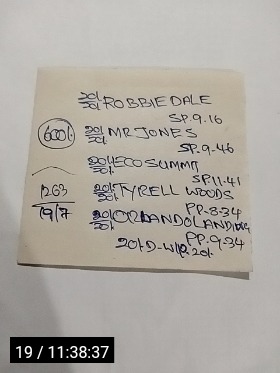 20/- 20/- ROBBIE DALE
SP.9.16
600/-
20/- 20/- MR JONES
SP.9-46
20/- ECO SUMMIT
SP11-41
1263
19/7
20/- 20/- TYRELL WOODS
PP-8-34
20/- 20/- ORLANDO LANDING
PP.9.34
20/- D-WIP-20/-
19 / 11:38:37